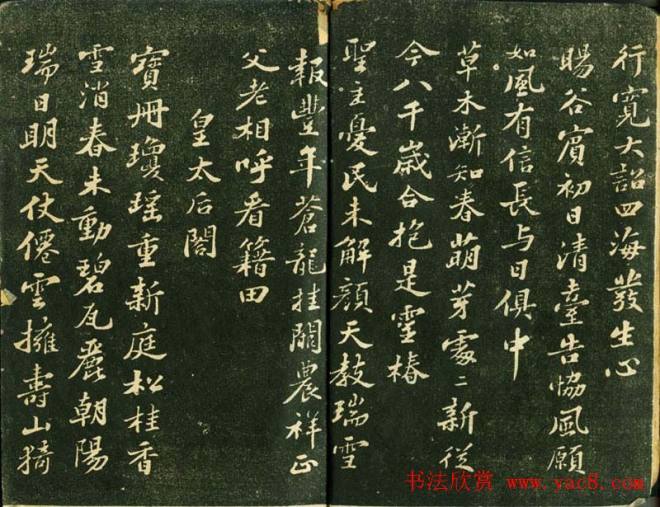 行寬大詔四海發生心
暘谷賓初日清臺告協風願
如風有信長与日俱中
草木漸知春萌芽處二新從
今八千歲合抱是靈椿
聖主憂民未解顏天教瑞雪
報豐年蒼龍挂闕農祥正
父老相呼看籍田
皇太后閤
寶冊瓊瑤重新庭松桂香
雪消春未動碧瓦麗朝陽
瑞日明天仗僊雲擁壽山猗
书法欣赏 www.yac8.com